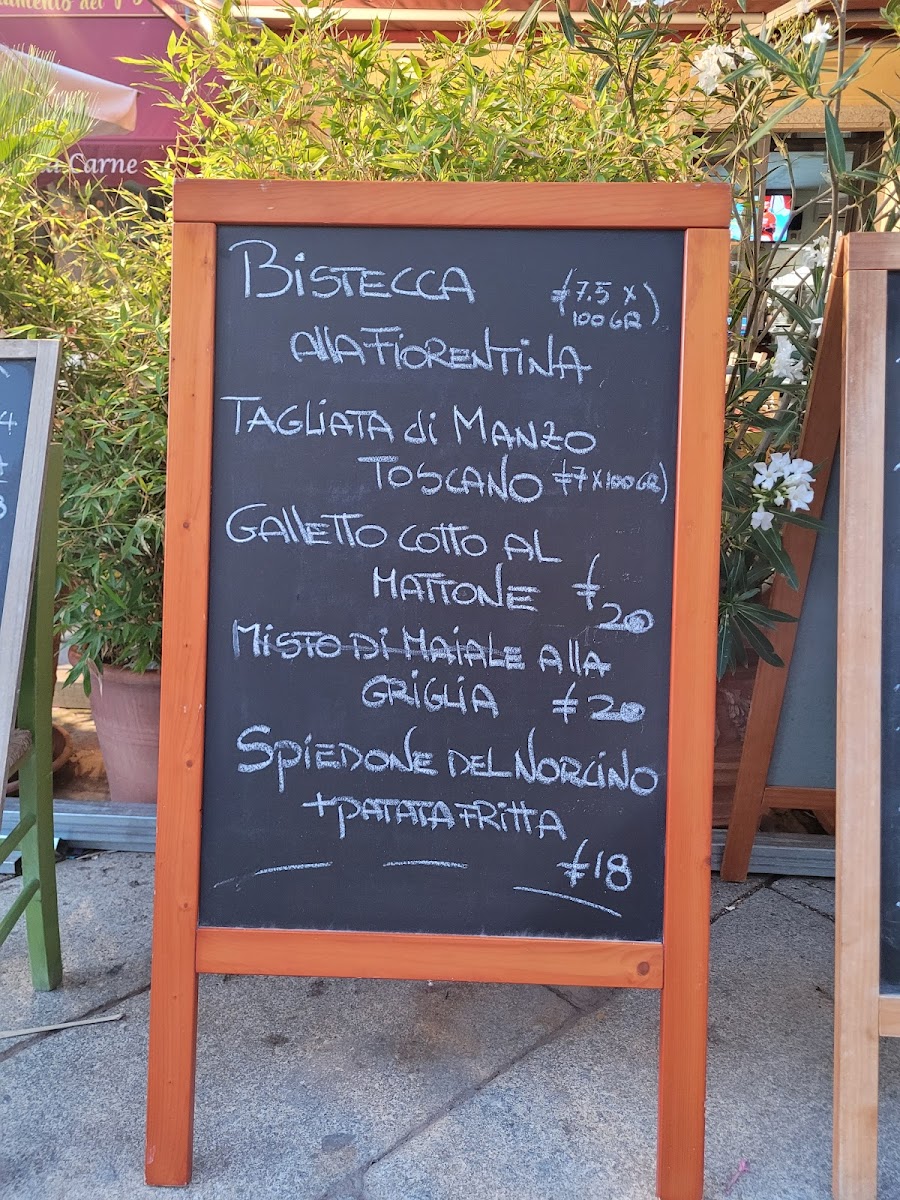 a Carne
BISTECCA (€7.5 x
100GR)
alla FIORENTINA
TAGLIATA di MANZO
TOSCANO €7x100GR)
GALLETTO COTTO AL
MATTONE €
20
MISTO DI MAIALE AllA
GRIGLIA €20
SPIEDONE DEL NORCINO
+PATATA FRITTA
€18
4